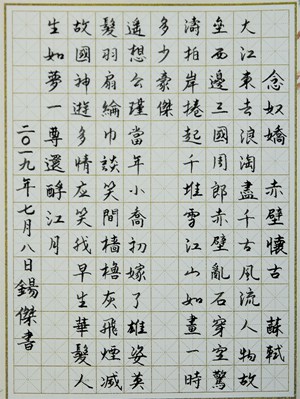 念奴嬌 赤壁懷古 蘇軾
大江東去浪淘盡千古風流人物故
壘西邊三國周郎赤壁亂石穿空驚
濤拍岸捲起千堆雪江山如畫一時
多少豪傑
遙想公瑾當年小喬初嫁了雄姿英
髮羽扇綸巾談笑間檣櫓灰飛煙滅
故國神遊多情应笑我早生華髮人
生如夢一尊還酹江月
二〇一九年七月八日錫傑書